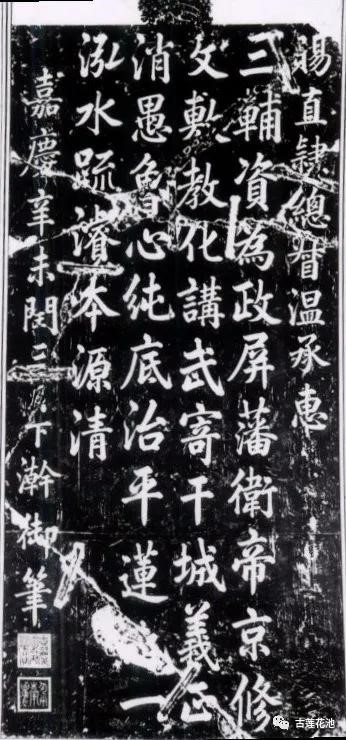 賜直隸總督温承惠
三輔資為政屏藩衛帝京修
文敷教化講武寄干城義正
消愚魯心純底治平蓮一
泓水疏濬本源清
嘉慶辛未閏三月下澣御筆
古莲花池